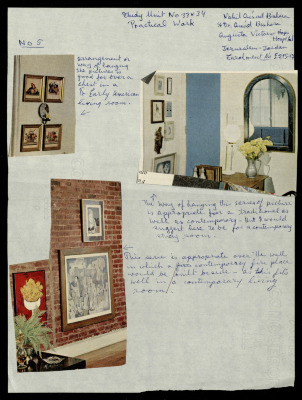 Study Unit No. 33 + 34
Practical Work
Nahil Awad Halwa
% Dr. Awad Halwa
Augusta Victoria Hosp.
Hospital
Jerusalem - Jordan
Enrolment No
No. 5
arrangement or
way of hanging
the pictures is
good for over a
chest in a
Early American
living room.
The way of hanging this series of pictures
is appropriate for a traditional as
well as contemporary. But I would
suggest here to be for a contemporary
living room.
This series is appropriate over the wall
in which a contemporary fire place
would be built because it fits
well in a contemporary living
room.